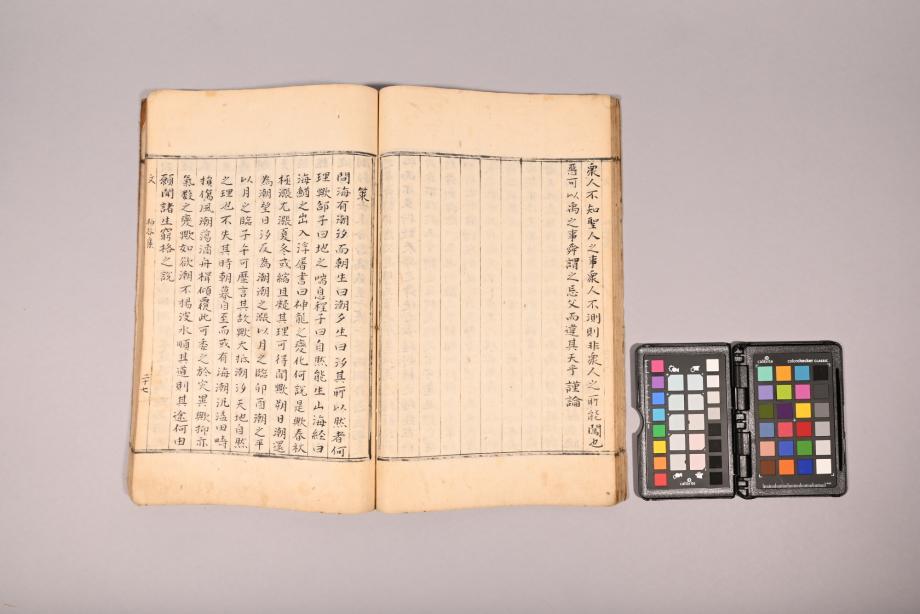 衆人不知聖人之事衆人不測則非衆人之所能闖也
可以禹之事舜謂之忘父而違其天乎謹論
策
問海有潮汐而朝生曰潮夕生曰汐其所以然者何
理歟邵子曰地之喘息程子曰自然能生山海經曰
海鰌之出入浮屠書曰神龍之變化何說是歟春秋
極漲尤漲夏冬或縮且凝其理可得聞歟朔日潮還
為潮望日汐反為潮潮之漲以月之臨卯酉潮之平
以月之臨子午可歷言其故歟大抵潮汐天地自然
之理也不失其時朝暮自至而或有海潮汎溢田時
損傷風潮蕩潏舟楫傾覆此可委之於灾異歟抑亦
氣數之變歟如欲潮不揚波水順其道則其途何由
願聞諸生窮格之說
文
集
二十七
calibrite
colorchecker CLASSIC
calibrite
calibrite